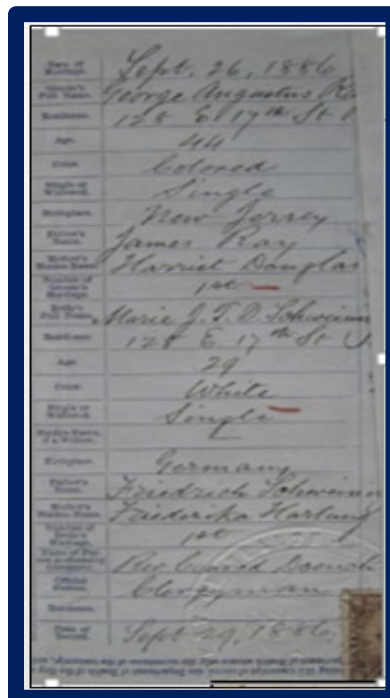 Date of Marriage. Sept. 26, 1886
Groom's Full Name. George Augustus Ra
Residence. 128 E. 17th St
Age. 44
Color. Colored
Single or Widowed. Single
Birthplace. New Jersey
Father's Name. James Ray
Mother's Maiden Name. Harriet Douglas
Number of Groom's Marriage. 1st
Bride's Full Name. Marie J. T. D. Schweinn
Residence. 128 E. 17th St
Age. 29
Color. White
Single or Widowed. Single
Maiden Name, if a Widow.
Birthplace. Germany
Father's Name. Friedrich Schweinn
Mother's Maiden Name. Friederika Hartung
Number of Bride's Marriage. 1st
Name of Rev Conrad
Official Station. Clergyman
Residence.
Date of Record. Sept 29, 1886.